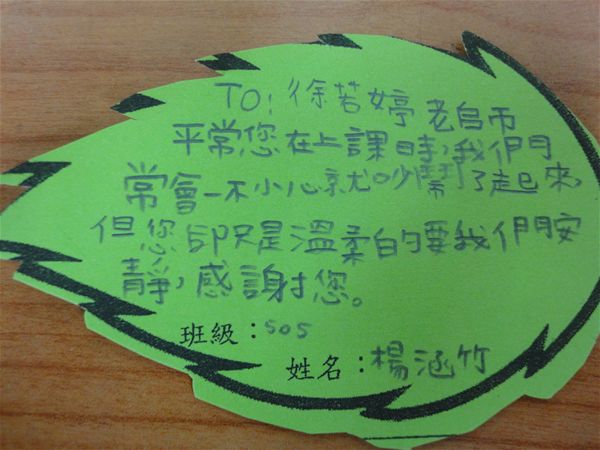 TO:徐若婷老師
平常您在上課時,我們
常會一不小心就吵鬧了起來,
但您卻只是溫柔的要我們安
靜,感謝您。
班級：505
姓名：楊涵竹